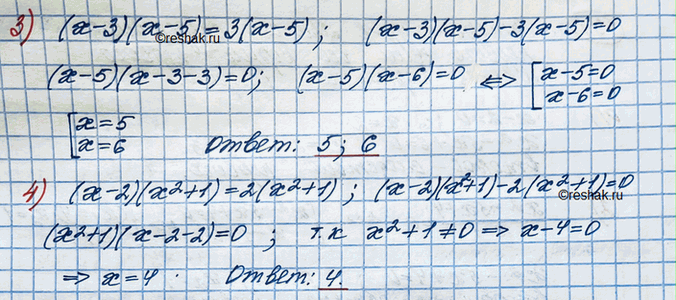 3) (x-3)(x-5)=3(x-5); (x-3)(x-5)-3(x-5)=0
©reshak.ru
(x-5)(x-3-3)=0; (x-5)(x-6)=0 ⟺ [x-5=0
x-6=0
[x=5
x=6 Ответ: 5; 6
4) (x-2)(x²+1)=2(x²+1); (x-2)(x²+1)-2(x²+1)=0
©reshak.ru
(x²+1)(x-2-2)=0; т.к x²+1≠0 ⇒ x-4=0
⇒ x=4. Ответ: 4.